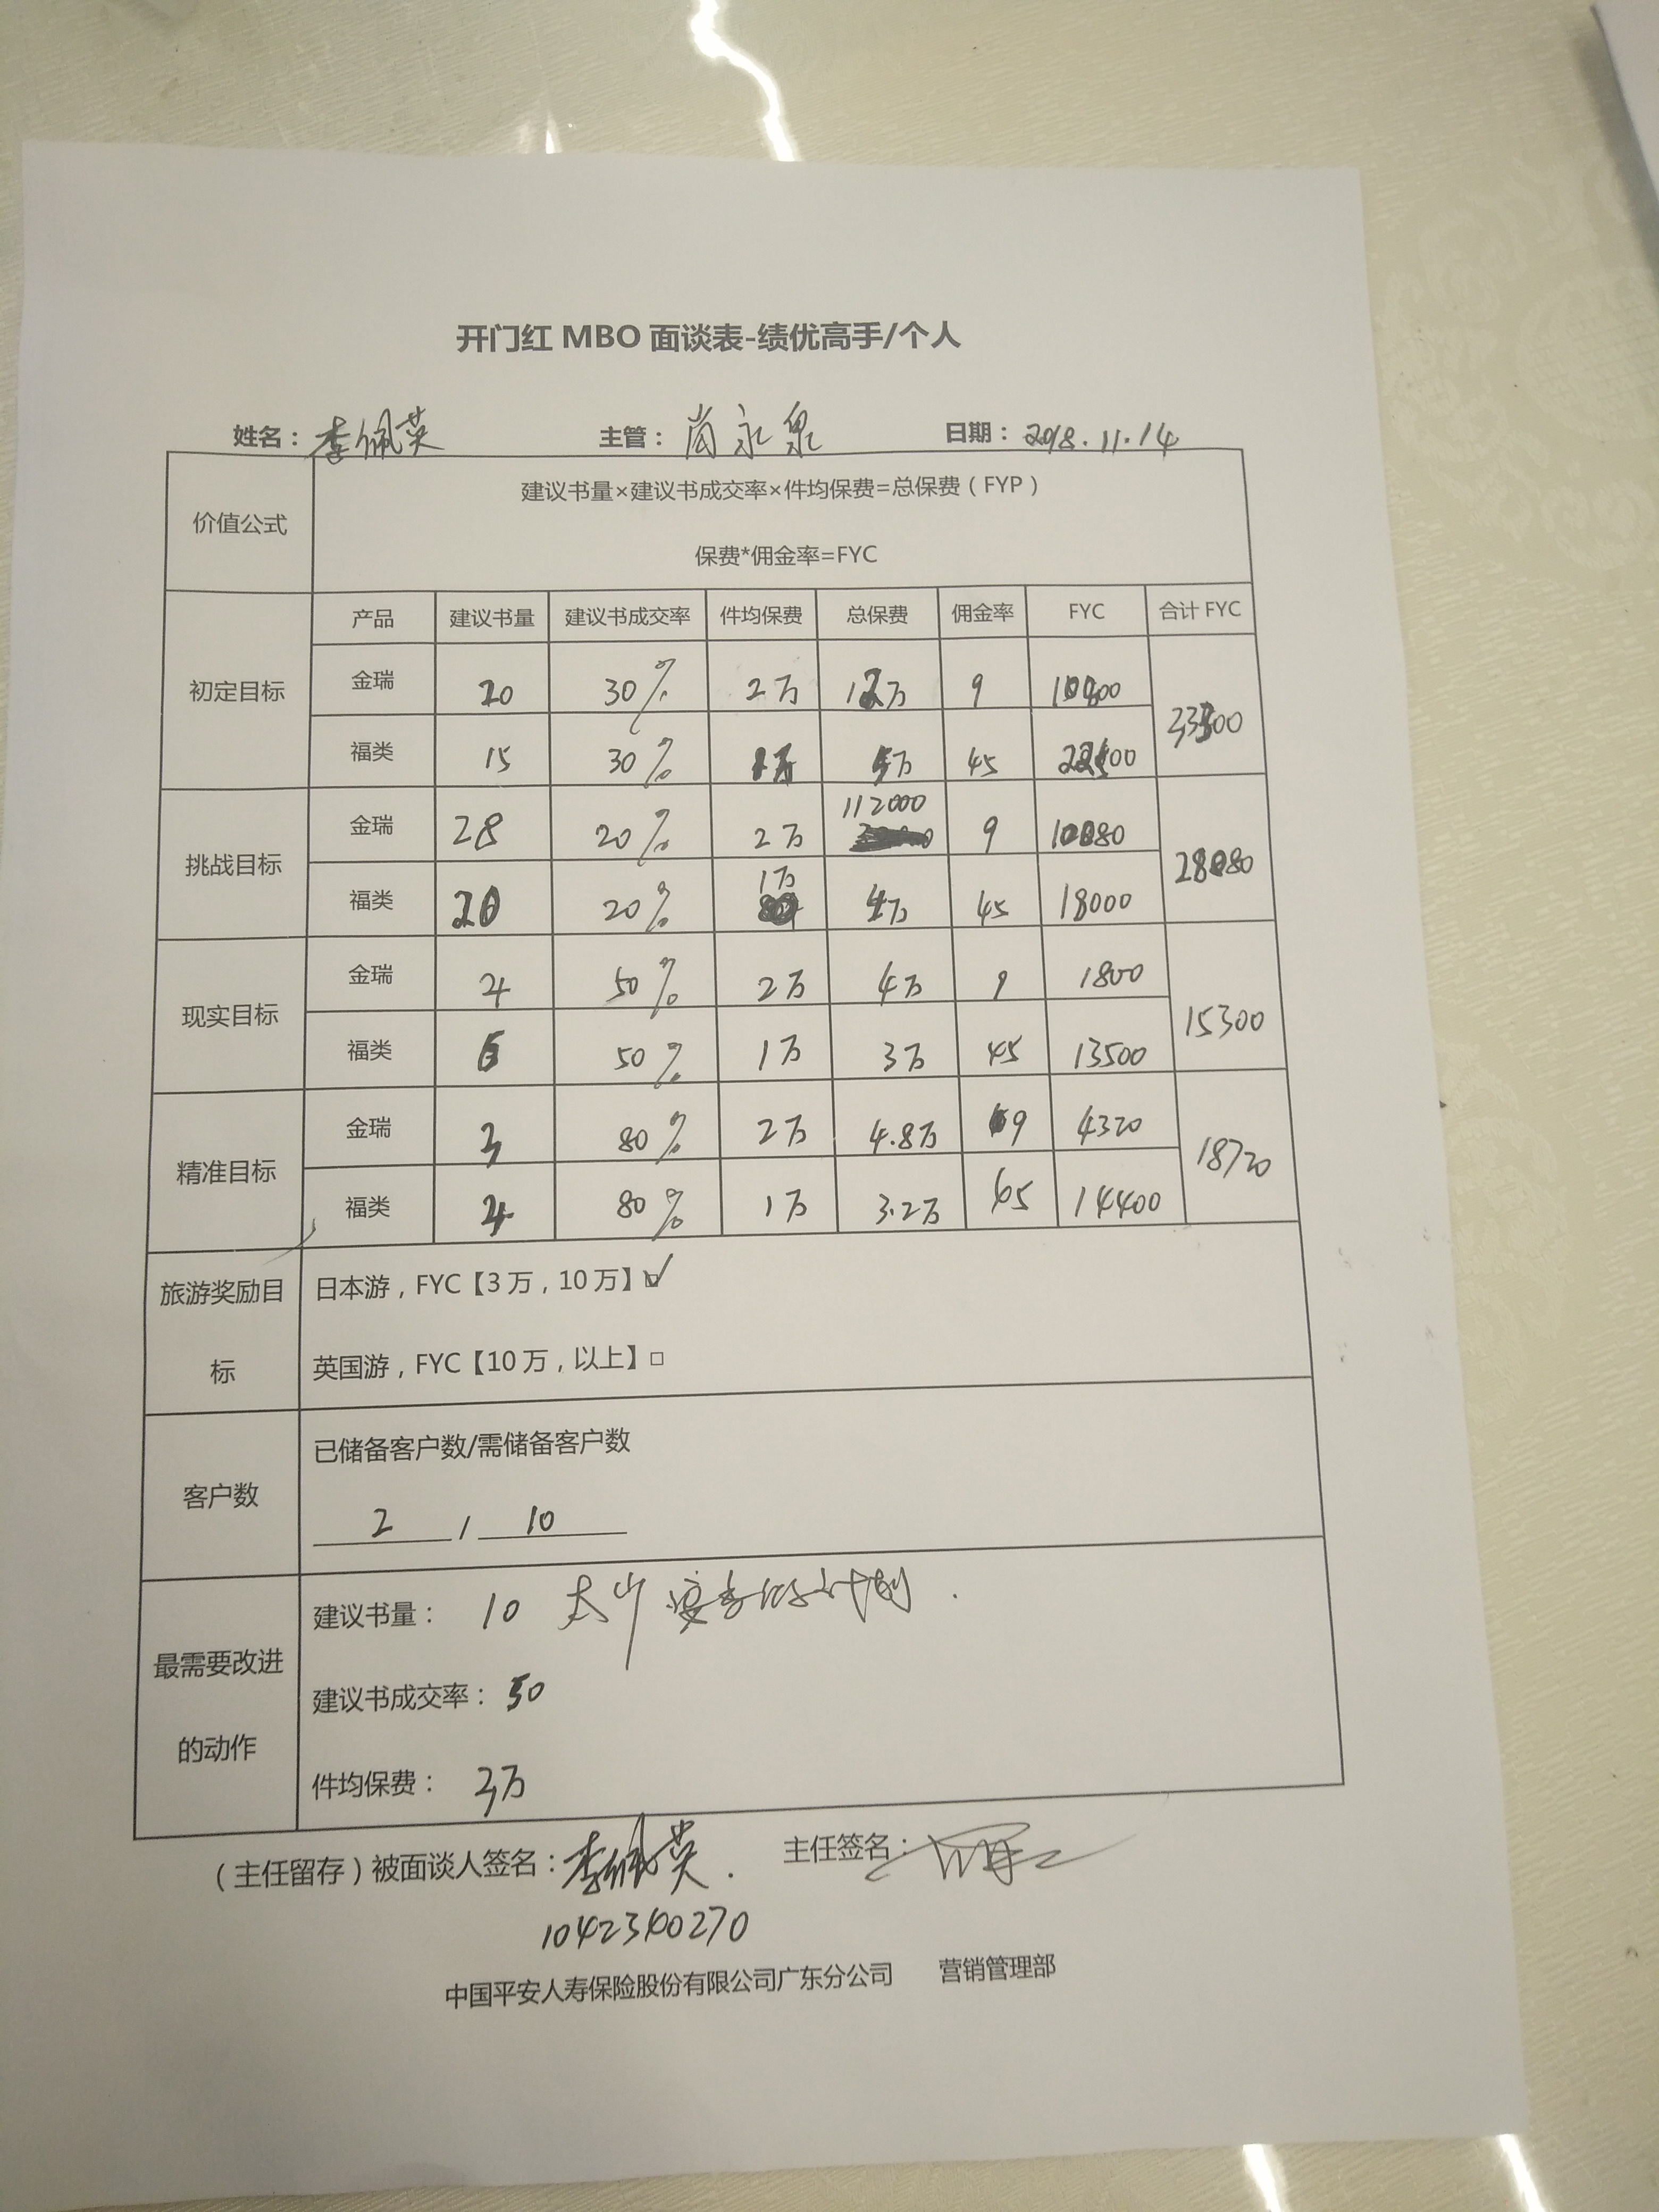 开门红 MBO 面谈表-绩优高手/个人
姓名：李佩英 主管：尚永泉 日期：2018.11.14
价值公式 建议书量×建议书成交率×件均保费=总保费（FYP）
保费*佣金率=FYC
产品 建议书量 建议书成交率 件均保费 总保费 佣金率 FYC 合计 FYC
初定目标 金瑞 20 30% 2万 12万 9 10800
福类 15 30% 45
挑战目标 金瑞 28 20% 2万 112000 9 10080 28080
福类 20 20% 1万 4万 45 18000
现实目标 金瑞 4 50% 2万 4万 9 1800 15300
福类 6 50% 1万 3万 45 13500
精准目标 金瑞 3 80% 2万 4.8万 9 4320 18720
福类 4 80% 1万 3.2万 45 14400
旅游奖励目标 日本游，FYC【3 万，10 万】☑
英国游，FYC【10 万，以上】□
客户数 已储备客户数/需储备客户数
2 / 10
最需要改进的动作 建议书量： 10 太少
建议书成交率：50
件均保费： 3万
（主任留存）被面谈人签名：李佩英. 主任签名：
1042340270
中国平安人寿保险股份有限公司广东分公司 营销管理部